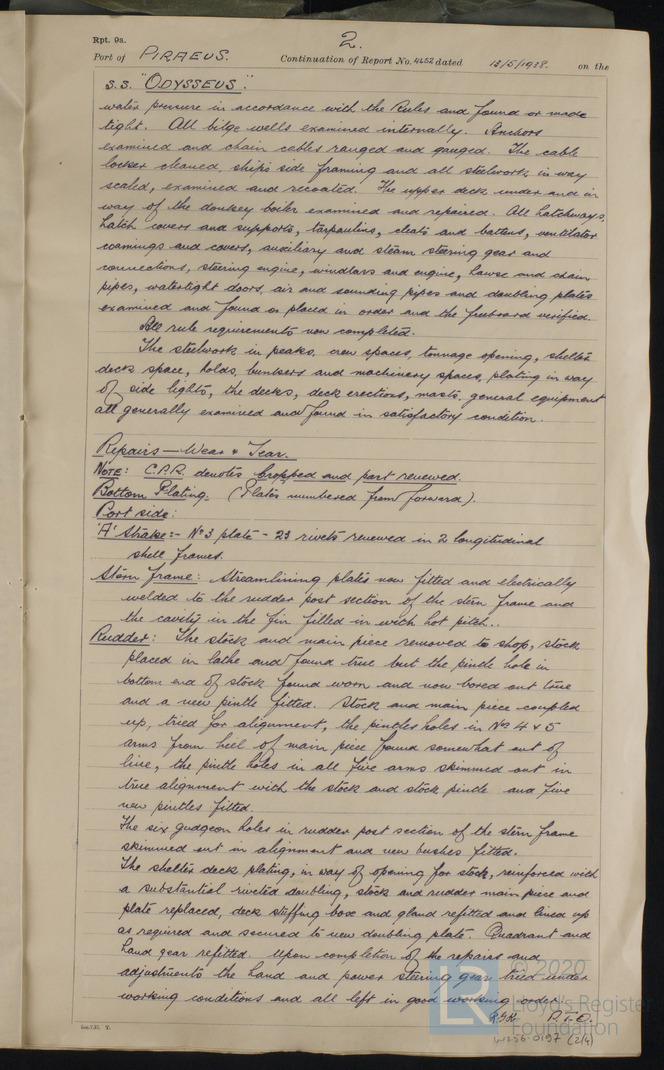 Rpt. 9a.
2.
Port of PIRAEUS. Continuation of Report No. 4652 dated 13/5/1938. on the
S.S. "ODYSSEUS".
water pressure in accordance with the Rules and found or made
tight. All bilge wells examined internally. Anchors
examined and chain cables ranged and gauged. The cable
locker cleaned, ships side framing and all steelwork in way
scaled, examined and recoated. The upper deck under and in
way of the donkey boiler examined and repaired. All hatchways,
hatch covers and supports, tarpaulins, cleats and battens, ventilator
coamings and covers, auxiliary and steam steering gear and
connections, steering engine, windlass and engine, hawse and chain
pipes, watertight doors, air and sounding pipes and doubling plates
examined and found or placed in order and the freeboard verified.
All rule requirements now completed.
The steelwork in peaks, crew spaces, tonnage opening, shelter
deck space, holds, bunkers and machinery spaces, plating in way
of side lights, the decks, deck erections, masts, general equipment
all generally examined and found in satisfactory condition.
Repairs — Wear & Tear.
NOTE: C.P.R. denotes Cropped and part renewed.
Bottom Plating. (Plates numbered from forward).
Port side:
'A' Strake:- No 3 plate - 23 rivets renewed in 2 longitudinal
shell frames.
Stern frame: Streamlining plates now fitted and electrically
welded to the rudder post section of the stern frame and
the cavity in the fin filled in with hot pitch.
Rudder: The stock and main piece removed to shop, stock
placed in lathe and found true but the pintle hole in
bottom end of stock found worn and now bored out true
and a new pintle fitted. Stock and main piece coupled
up, tried for alignment, the pintles holes in Nos 4 & 5
arms from heel of main piece found somewhat out of
line, the pintle holes in all five arms skimmed out in
true alignment with the stock and stock pintle and five
new pintles fitted.
The six gudgeon holes in rudder post section of the stern frame
skimmed out in alignment and new bushes fitted.
The shelter deck plating, in way of opening for stock, reinforced with
a substantial riveted doubling, stock and rudder main piece and
plate replaced, deck stuffing box and gland refitted and lined up
as required and secured to new doubling plate. Quadrant and
hand gear refitted. Upon completion of the repairs and
adjustments the hand and power steering gear tried under
working conditions and all left in good working order.
P.T.O.
© 2020
LR
Lloyd's Register
Foundation
W256-0197 (2/4)